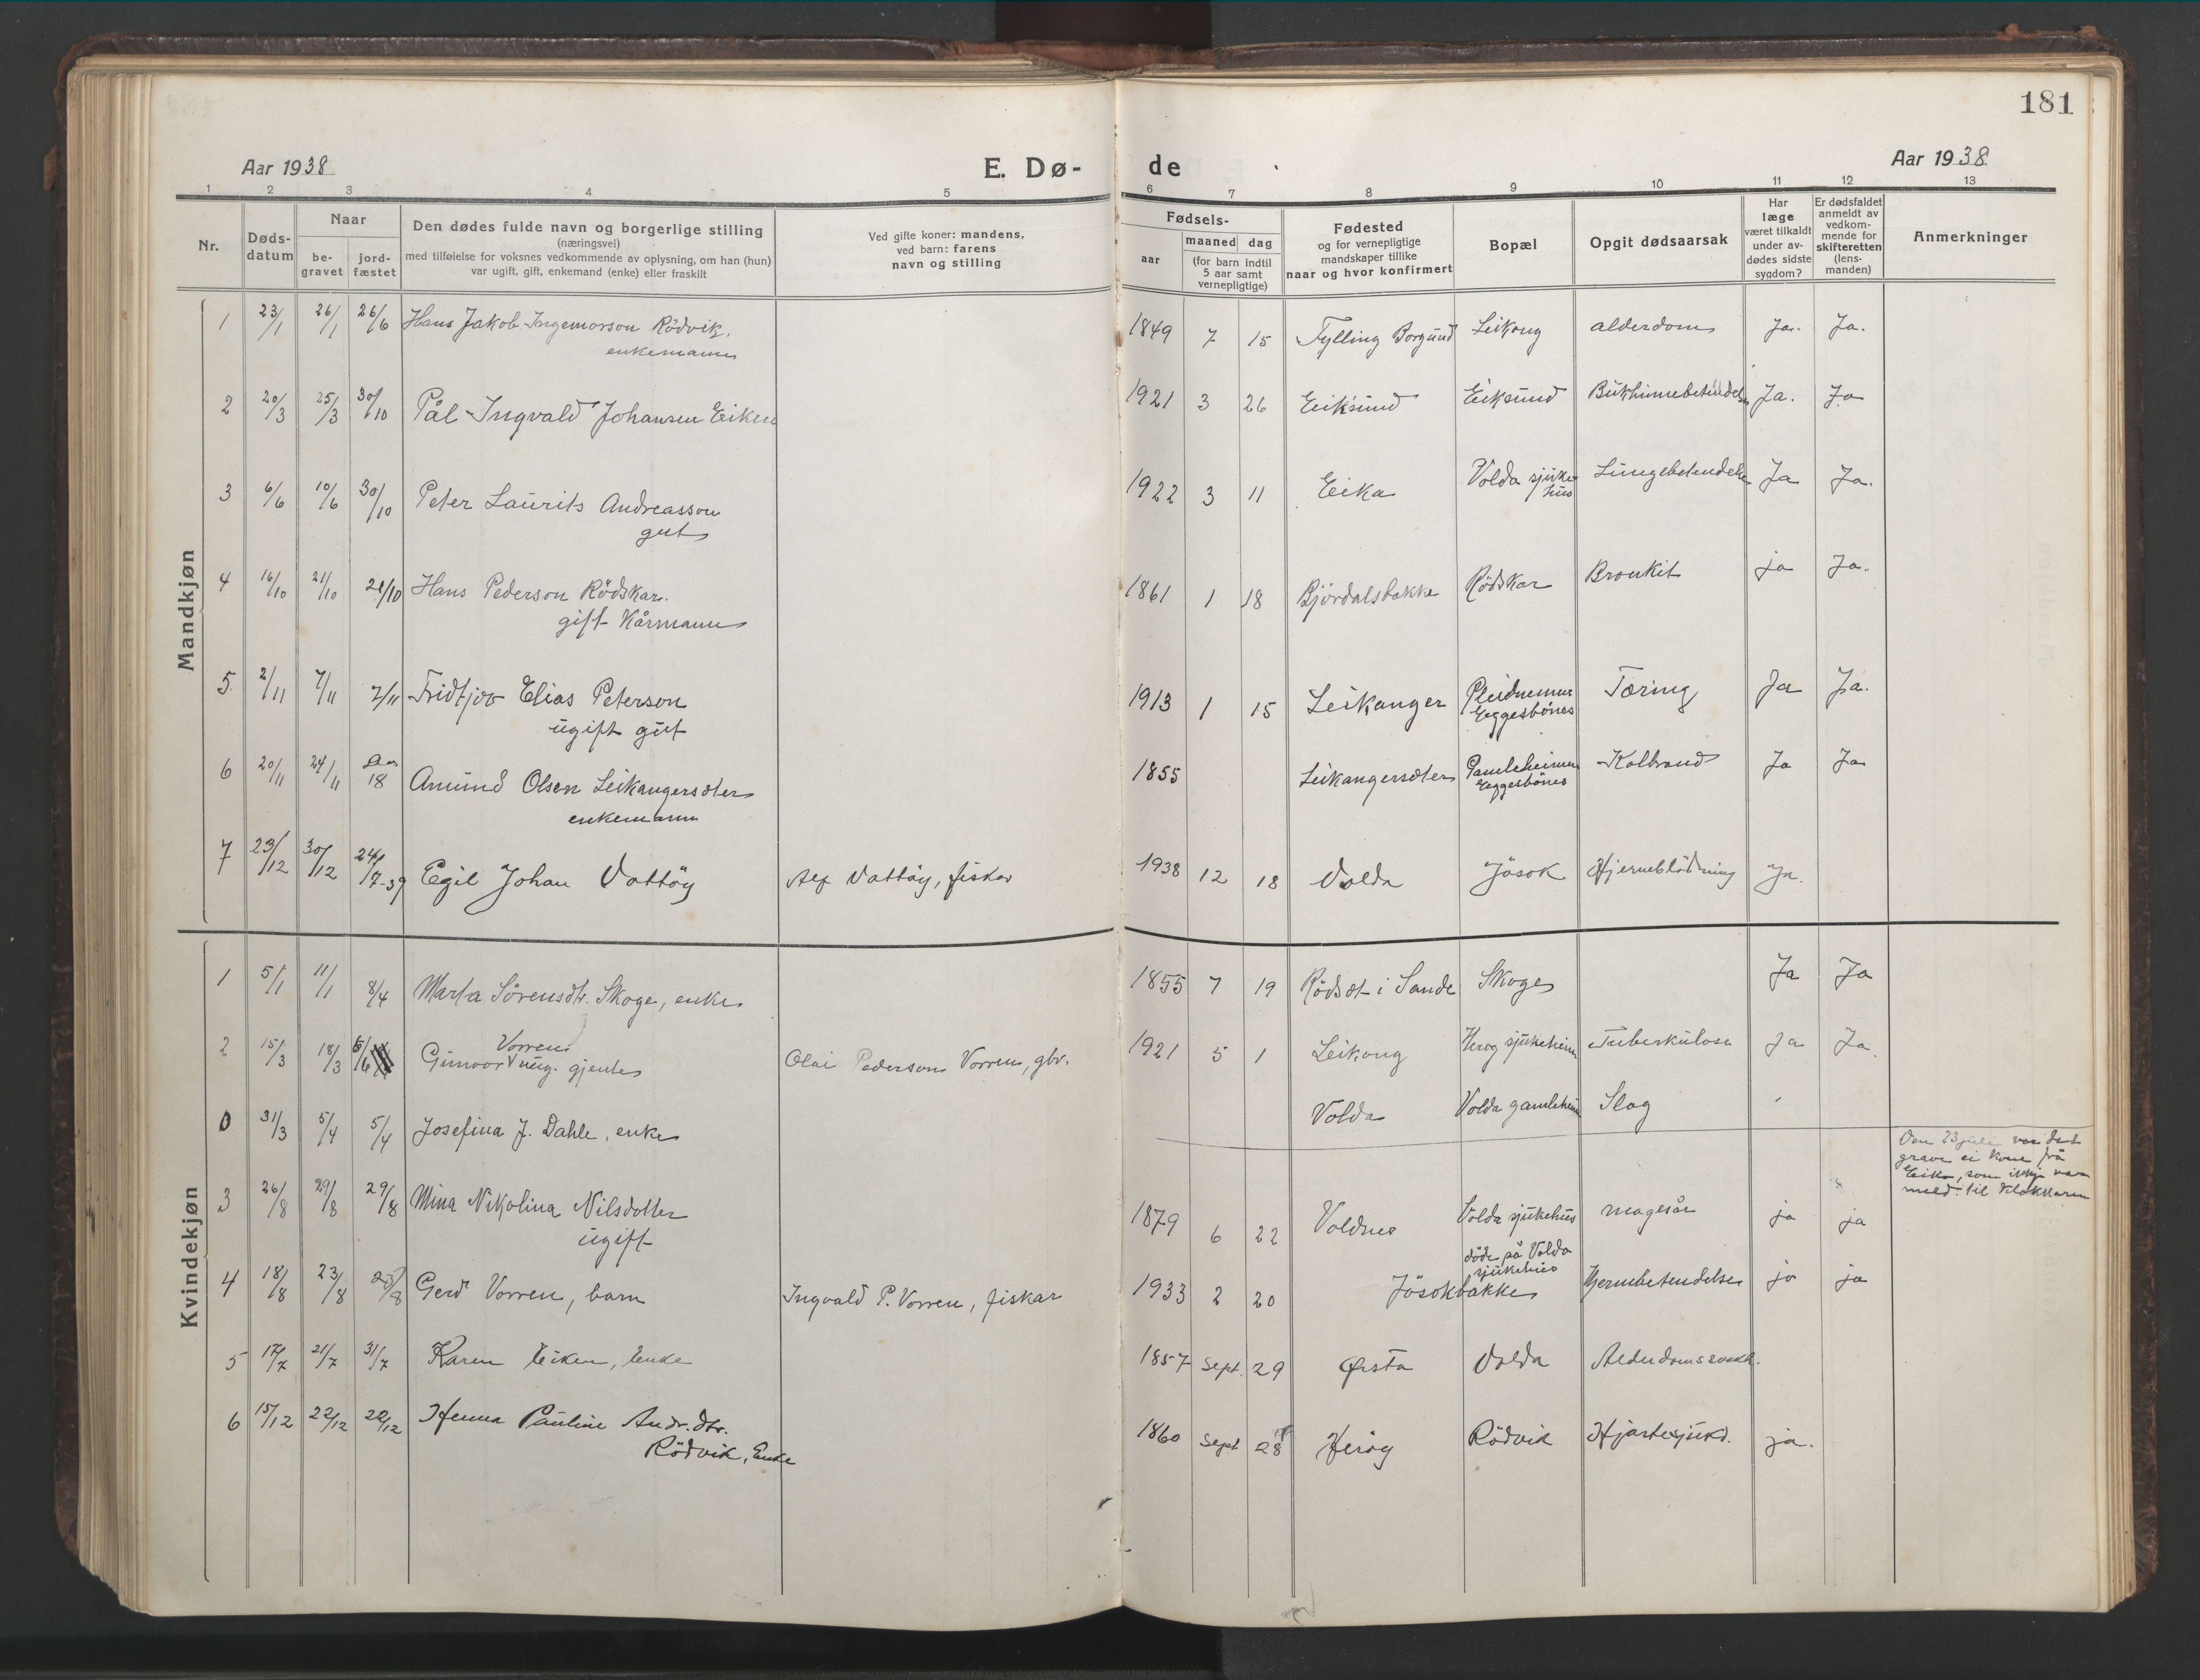 181
Aar 1938
E. Dø-
de
Aar 1938
1 2 3 4 5 6 7 8 9 10 11 12 13
Nr.
Døds-
datum
Naar
be-
gravet
jord-
fæstet
Den dødes fulde navn og borgerlige stilling
(næringsvei)
med tilføielse for voksnes vedkommende av oplysning, om han (hun)
var ugift, gift, enkemand (enke) eller fraskilt
Ved gifte koner: mandens,
ved barn: farens
navn og stilling
Fødsels-
aar
maaned dag
(for barn indtil
5 aar samt
vernepligtige)
Fødested
og for vernepligtige
mandskaper tillike
naar og hvor konfirmert
Bopæl
Opgit dødsaarsak
Har
læge
været tilkaldt
under av-
dødes sidste
sygdom?
Er dødsfaldet
anmeldt av
vedkom-
mende for
skifteretten
(lens-
manden)
Anmerkninger
Mandkjøn
1 23/1 26/1 26/6 Hans Jakob Ingemorson Rödvik, 1849 7 15 Tylling Borgund Leikong alderdom Ja. Ja.
enkemann
2 20/3 25/3 30/10 Pål Ingvald Johansen Eiken 1921 3 26 Eiksund Eiksund Bukhinnebetendelse Ja. Ja
3 6/6 10/6 30/10 Peter Laurits Andreasson 1922 3 11 Eika Volda sjuke Lungebetendelse Ja Ja.
gut hus
4 16/10 21/10 21/10 Hans Pederson Rödskar. 1861 1 18 Björdalsbakke Rödskar Bronkit ja Ja.
gift Kårmann
5 2/11 7/11 7/11 Fridtjov Elias Peterson 1913 1 15 Leikanger Pleidnemnr Tæring Ja Ja.
ugift gut Eggesbönes
6 20/11 24/11 18 Amund Olsen Leikangersæter 1855 Leikangersæter Gamleheimen Kolbrand Ja Ja
enkemann Eggesbönes
7 23/12 30/12 24/7-39 Egil Johan Vattöy Alf Vattöy, fiskar 1938 12 18 Volda Jösok Hjerneblödning Ja.
Kvindekjøn
1 5/1 11/1 8/4 Marta Sörensdtr. Skoge, enke 1855 7 19 Rödset i Sande Skoge Ja Ja
Vorren
2 15/3 18/3 6/6 Gunvor ung. gjente Olai Pederson Vorren, gbr. 1921 5 1 Leikong Heröy sjukeheim Tuberkulose Ja Ja.
0 31/3 5/4 5/4 Josefina J. Dahle, enke Volda Volda gamleheim Slag
Den 23 juli var det
grave ei kone frå
Eika, som ikkje var
meld til klokkaren
3 26/8 29/8 29/8 Mina Nikolina Nilsdotter 1879 6 22 Voldnes Volda sjukehus magesår ja ja
ugift
döde på Volda
sjukehus
4 18/8 23/8 23/8 Gerd Vorren, barn Ingvald P. Vorren, fiskar 1933 2 20 Jösokbakke Hjernebetendelse ja ja
5 17/7 21/7 31/7 Karen Eiken, Enke 1857 Sept. 29 Ørsta Volda Alderdomssvakh.
6 15/12 22/12 22/12 Henna Pauline Andr.dtr. 1860 Sept 28 Heröy Rödvik Hjartesjukd. ja.
Rödvik, Enke